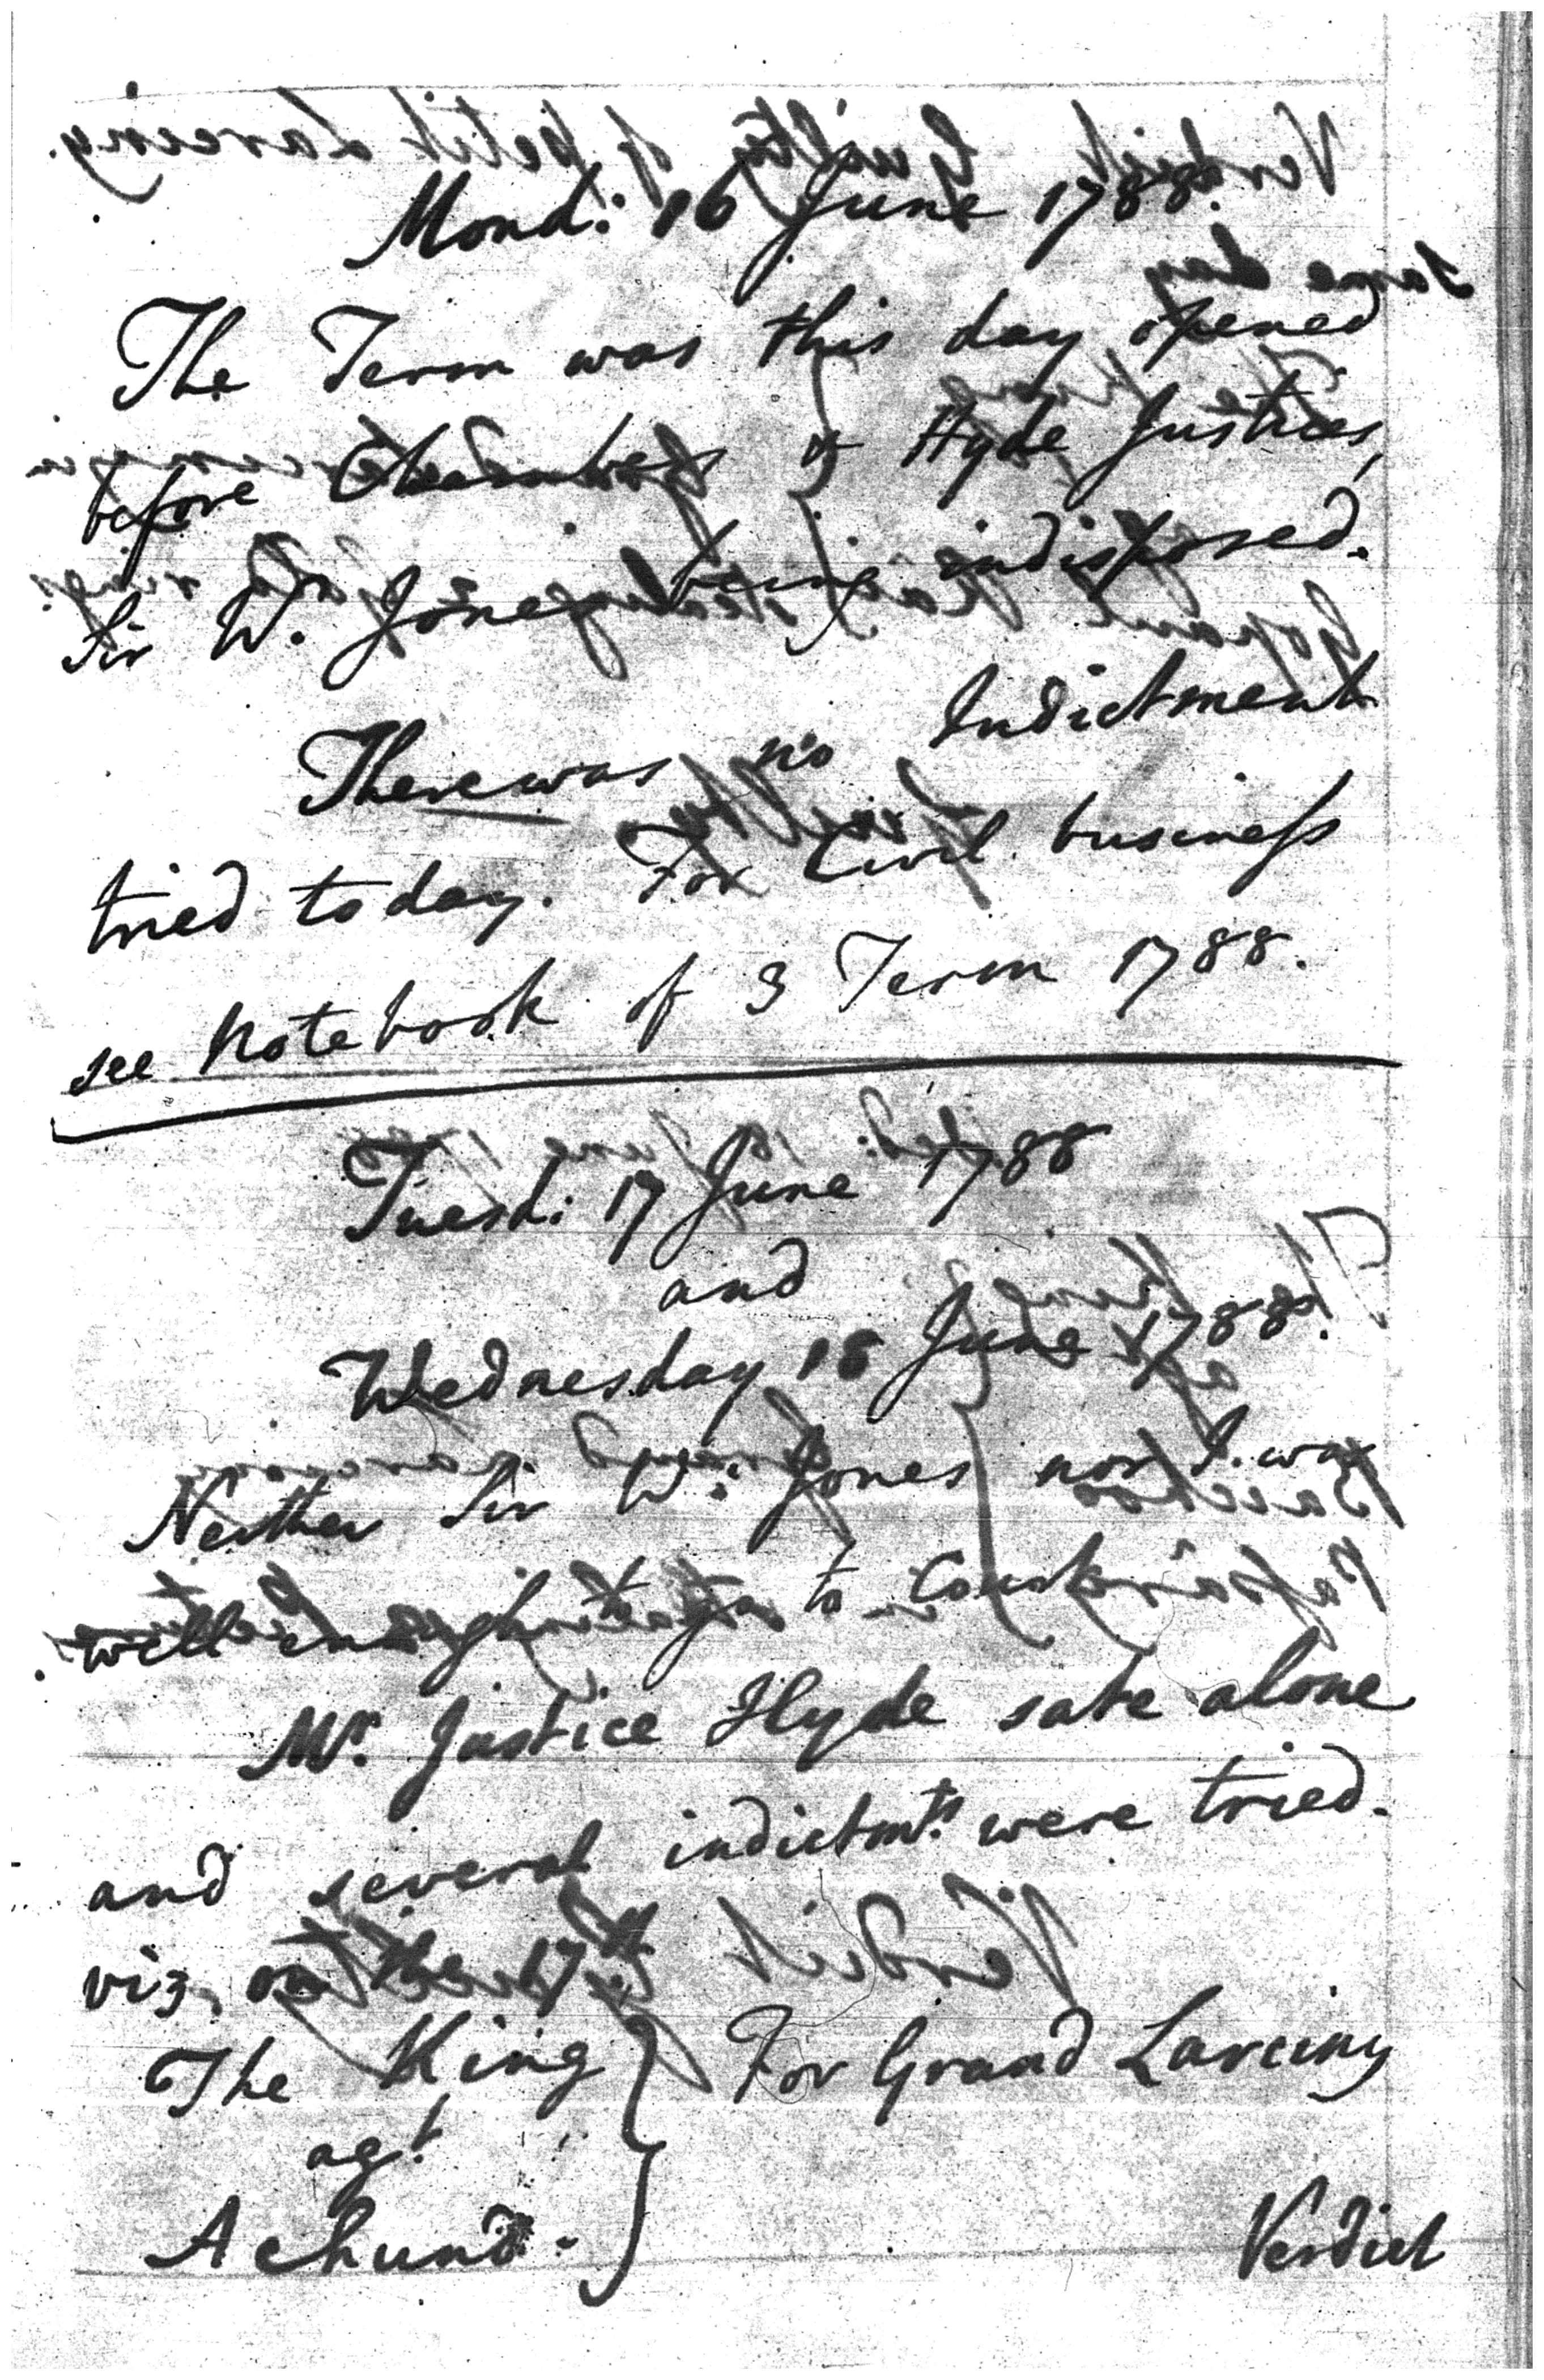 Mond: 16 June 1788.
The Term was this day opened
before Chambers & Hyde Justices,
Sir W. Jones being indisposed.
There was no Indictment
tried today. For Civil business
see Notebook of 3 Term 1788.
Tuesd: 17 June 1788
and
Wednesday 18 June 1788.
Neither Sir W: Jones nor I was
well enough to go to Court
Mr. Justice Hyde sate alone
and several indictmts. were tried.
viz. on the 17th.
The King } For Grand Larciny
agt.
Achund.
Verdict